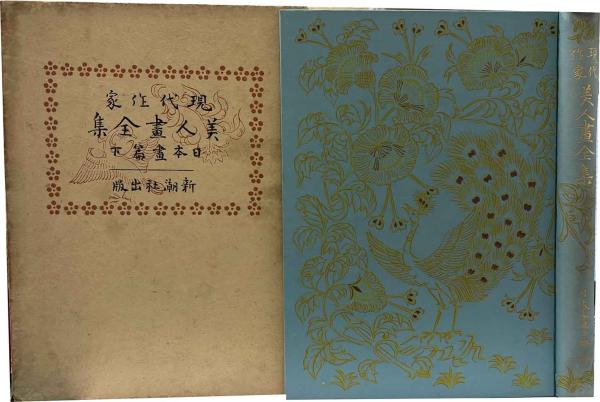 現代作家
美人畫全集
日本畫篇下
新潮社出版
現代
作家
美人畫全集